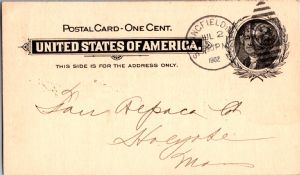 POSTAL CARD - ONE CENT.
UNITED STATES OF AMERICA.
THIS SIDE IS FOR THE ADDRESS ONLY.
SPRINGFIELD
JUL 2
PM
1902
Farr Alpaca Co
Holyoke
Mass